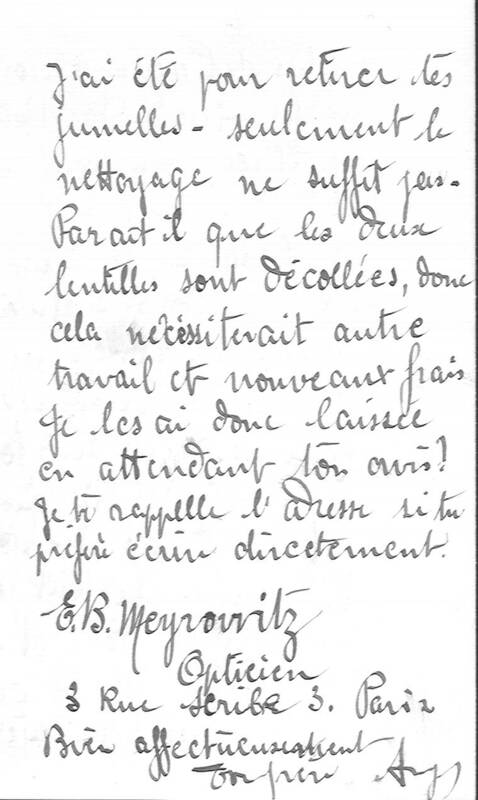 J'ai été pour retirer tes
jumelles - seulement le
nettoyage ne suffit pas -
Parait il que les deux
lentilles sont décollées, donc
cela nécéssiterait autre
travail et nouveaux frais
Je les ai donc laissée
en attendant ton avis?
Je te rappelle l'adresse si tu
prefere écrire directement.
E.B. Meyrowitz
Opticien
3 Rue Scribe 3. Paris
Bien affectueusement
ton frère